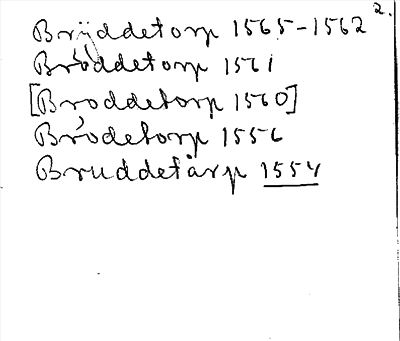 2.
Brÿddetorp 1565-1562
Bröddetorp 1561
[Broddetorp 1560]
Brödetorp 1556
Bruddetårp 1554